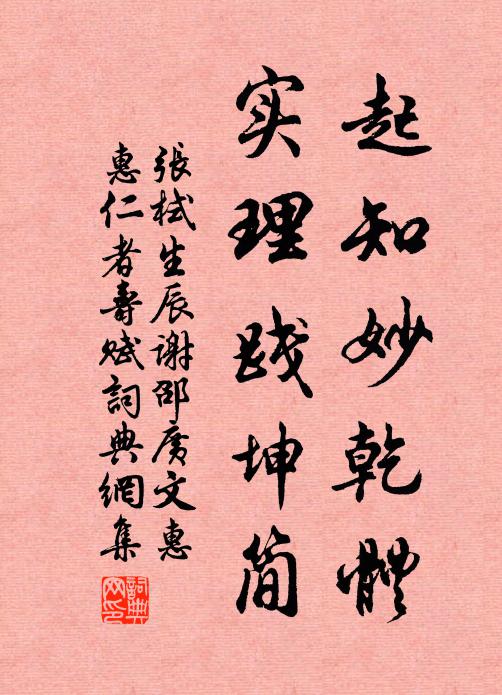 起知妙乾體
实理践坤简
張栻生辰谢邵广文惠
惠仁者壽赋詞典網集
詞典网印